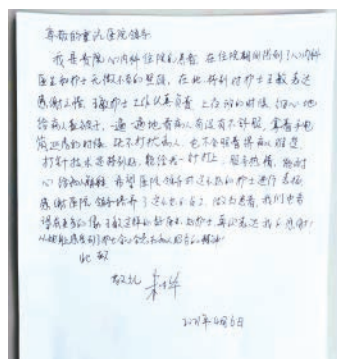 尊敬的重汽医院领导
我是贵院心内科住院的患者，在住院期间得到了心内科
医生和护士无微不至的照顾，在此特别对护士王敏表达
感谢之情。王敏护士工作认真负责，上夜班的时候，细心地
给病人盖被子，一遍一遍地看病人有没有不舒服，拿着手电
筒巡房的时候，从不打扰病人，也不会照着病人眼睛，
打针技术也特别好，都能一针打上，服务热情，能耐
心给病人解释，希望医院领导对这么好的护士进行表扬
感谢医院领导培养了这么好的员工，做为患者，我们也希
望有更多的像王敏这样的好护士，
此致
敬礼